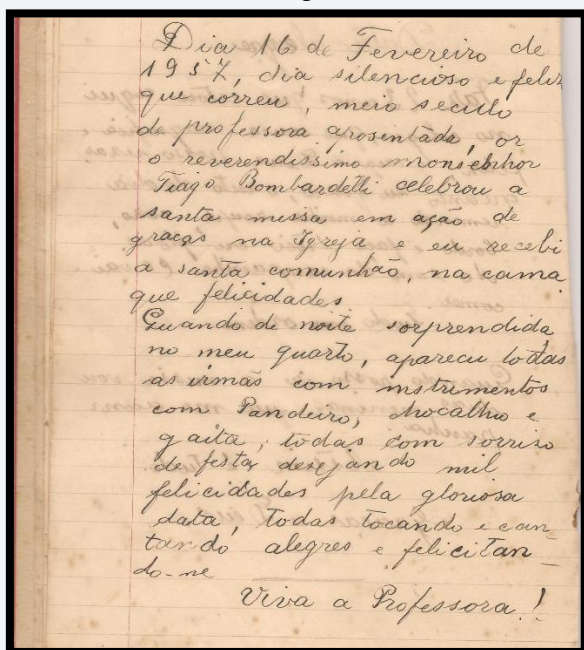 Dia 16 de Fevereiro de
1957, dia silencioso e feliz
que correu, meio seculo
de professora aposentada, or
o reverendissimo monsenhor
Tiago Bombardelli celebrou a
santa missa em ação de
graças na Igreja e eu recebi
a santa comunhão, na cama
que felicidades
Quando de noite sorprendida
no meu quarto, apareceu todas
as irmãs com instrumentos
com Pandeiro, chocalho e
gaita, todas com sorriso
de festa desejando mil
felicidades pela gloriosa
data, todas tocando e can-
tando alegres e felicitan-
do-me
Viva a Professora!